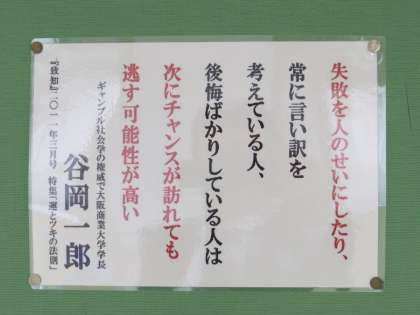 失敗を人のせいにしたり、
常に言い訳を
考えている人、
後悔ばかりしている人は
次にチャンスが訪れても
逃す可能性が高い
ギャンブル社会学の権威で大阪商業大学学長
谷岡一郎
『致知』二〇一一年三月号 特集「運とツキの法則」